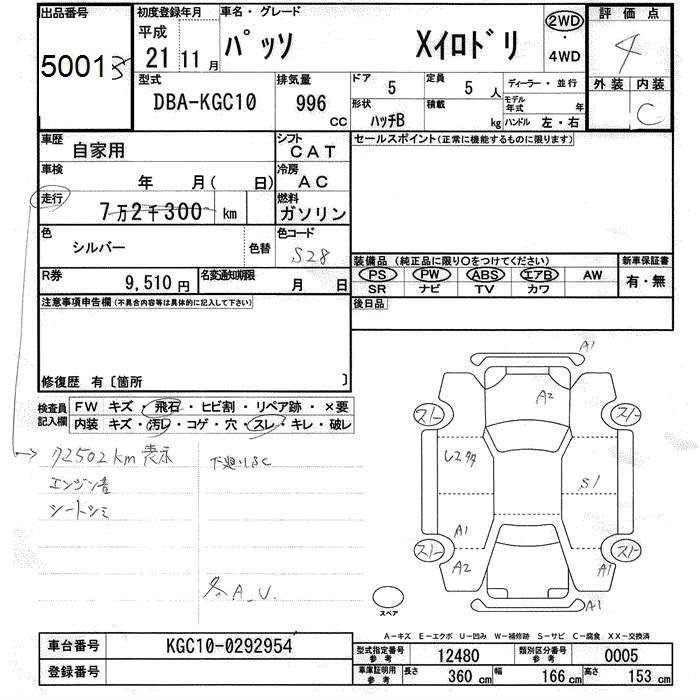 出品番号 初度登録年月日 車名・グレード 2WD 評価点
平成
50013 21年11月 パッソ Xイロドリ ・ 4
4WD
型式 排気量 ドア 5 定員 5人 ディーラー・並行 外装 内装
DBA-KGC10 996cc 形状 ハッチB 積載 kg モデル年式 年 C
ハンドル 左・右
車歴 自家用 シフト CAT セールスポイント(正常に機能するものに限ります)
車検 年 月( 日) 冷房 AC
走行 7万2千300km 燃料 ガソリン
色 シルバー 色替 色コード S28
装備品(純正品に限り○をつけてください) 新車保証書
R券 9,510円 名変通知期限 月 日 PS PW ABS エアB AW 有・無
SR ナビ TV カワ
注意事項申告欄(不具合内容等は具体的に記入して下さい) 後日品
修復歴 有〔箇所 〕
検査員 FW キズ・飛石・ヒビ割・リペア跡・×要
記入欄 内装 キズ・汚レ・コゲ・穴・スレ・キレ・破レ
72502km 表示 下廻りSC
エンジン音
シートシミ
A1
A2
スノー スノー
S1
A1
A2 A1
スノー スノー
A1
スペア
A-キズ E-エクボ U-凹み W-補修跡 S-サビ C-腐食 XX-交換済
車台番号 KGC10-0292954 型式指定番号 参考 12480 類別区分番号 参考 0005
登録番号 車庫証明用 参考 長さ 360cm 幅 166cm 高さ 153cm